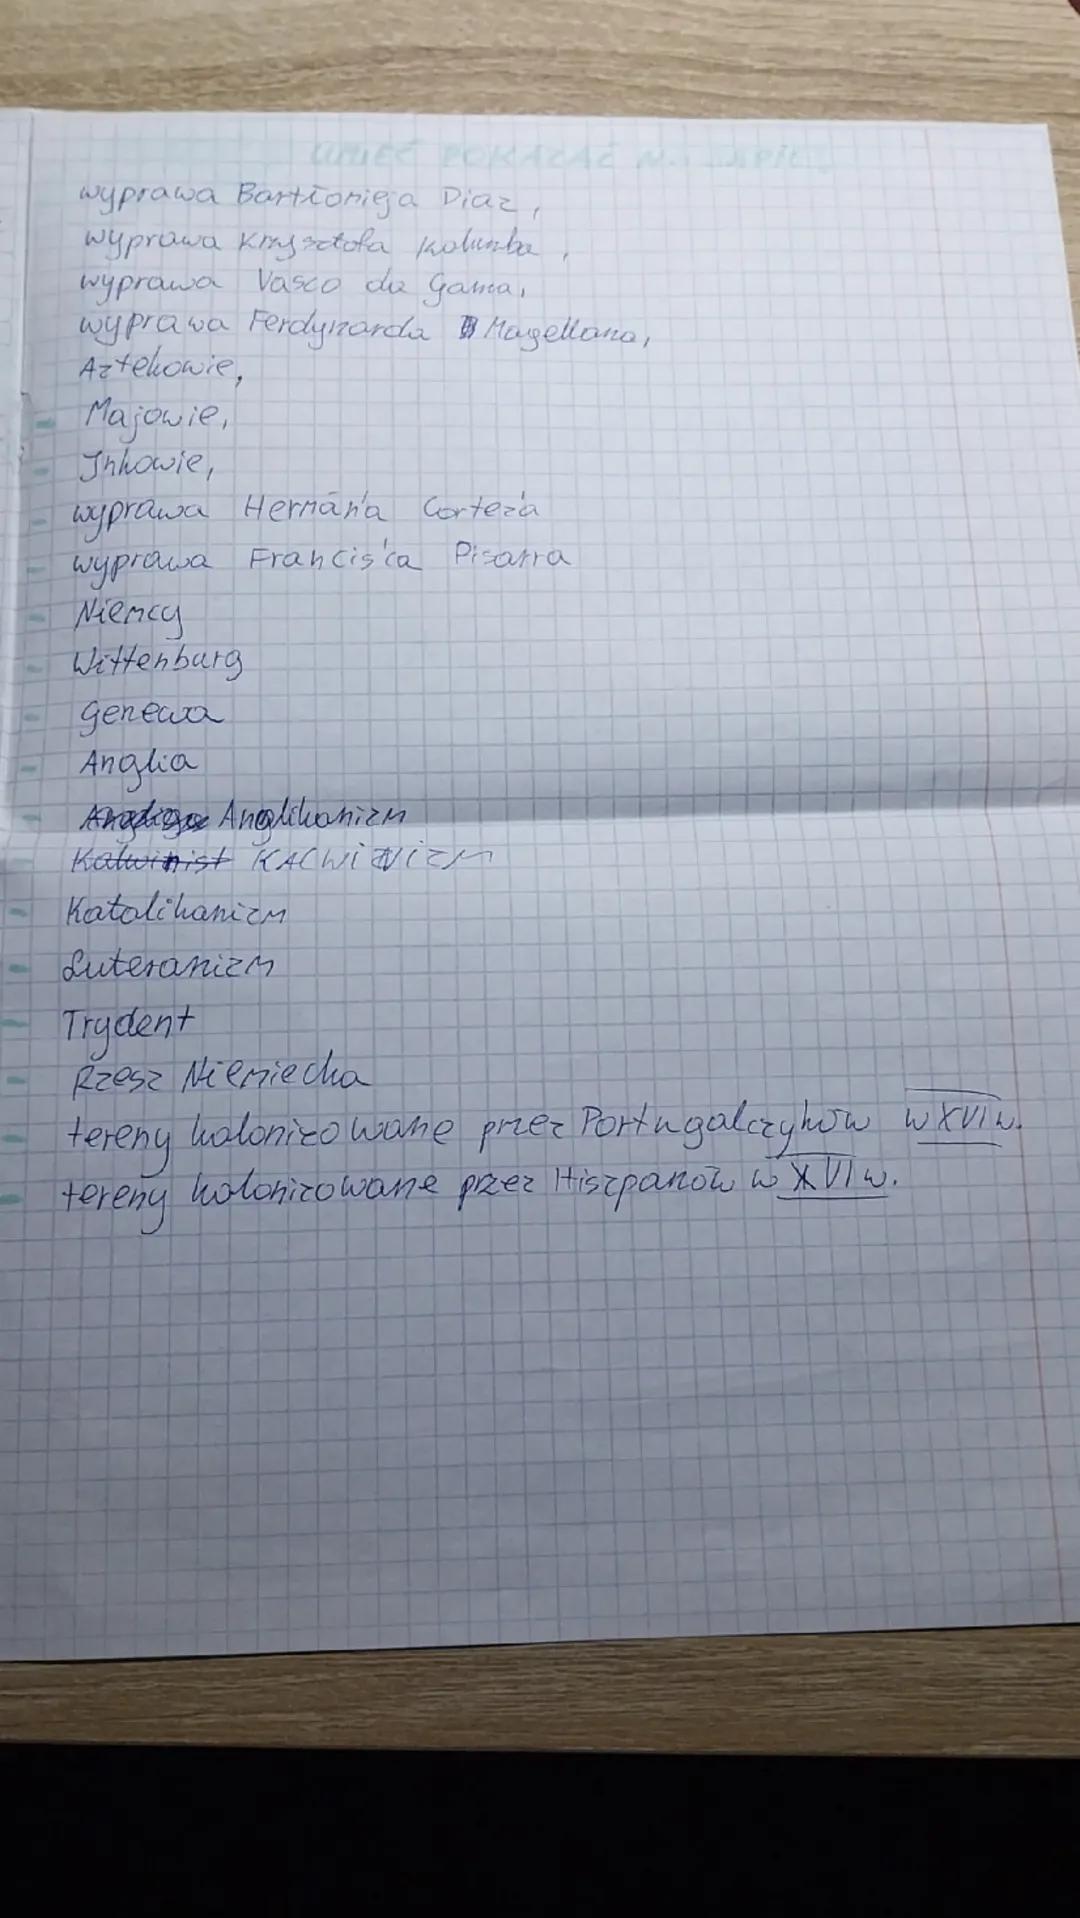 UMIEĆ POKAZAĆ NA MAPIE
wyprawa Bartłomieja Diaz,
wyprawa Krzysztofa Kolumba,
wyprawa Vasco da Gama,
wyprawa Ferdynanda Magellana,
Aztekowie,
Majowie,
Inkowie,
wyprawa Hernán'a Cortez'a
wyprawa Francis'ca Pisarra
Niemcy
Wittenburg
Genewa
Anglia
Anglikanizm
Kalwinist KALWINIZM
Katolikanizm
Luteranizm
Trydent
Rzesz Niemiecka
tereny kolonizowane przez Portugalczyków w XVI w.
tereny kolonizowane przez Hiszpanów w XVI w.